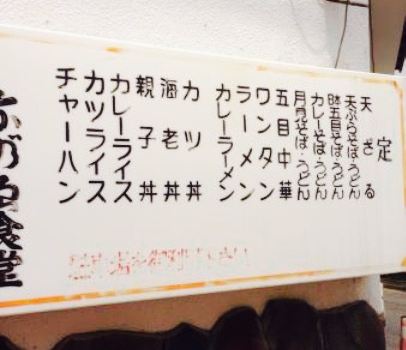 定
天ざる
天ぷらそば・うどん
五目そば・うどん
カレーそば・うどん
月見そば・うどん
五目中華
ワンタン
ラーメン
カレーラーメン
カツ丼
海老丼
親子丼
カレーライス
カツライス
チャーハン
食堂